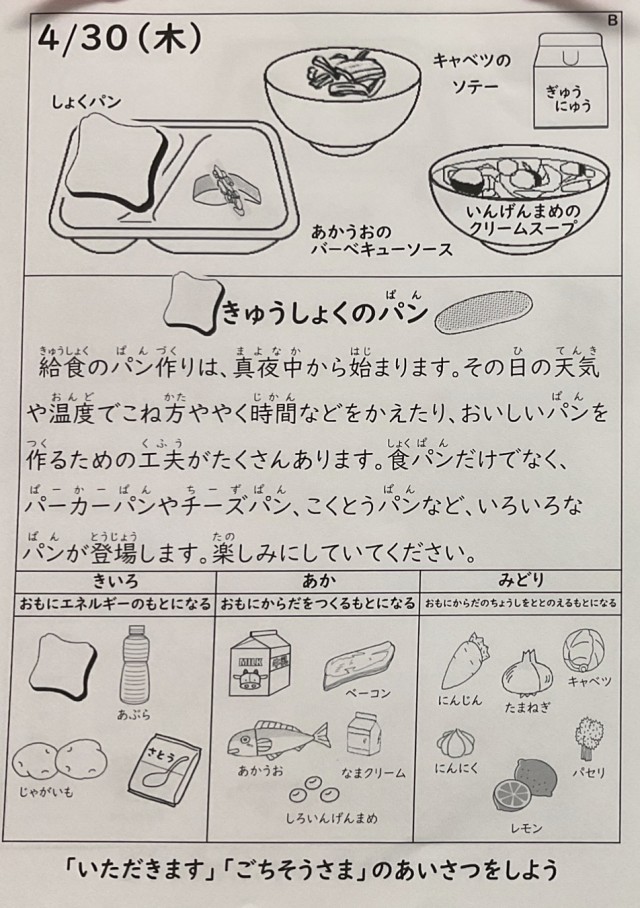 B
4/30(木)
キャベツの
ソテー
ぎゅう
にゅう
しょくパン
あかうおの
バーベキューソース
いんげんまめの
クリームスープ
きゅうしょくのパン
ぱん
きゅうしょく ぱんづく まよなか はじ ひ てんき
給食のパン作りは、真夜中から始まります。その日の天気
おんど かた じかん ぱん
や温度でこね方ややく時間などをかえたり、おいしいパンを
つく くふう しょくぱん
作るための工夫がたくさんあります。食パンだけでなく、
ぱーかーぱん ちーずぱん ぱん
パーカーパンやチーズパン、こくとうパンなど、いろいろな
ぱん とうじょう たの
パンが登場します。楽しみにしていてください。
きいろ
おもにエネルギーのもとになる
あぶら
じゃがいも
さとう
あか
おもにからだをつくるもとになる
MILK
ベーコン
あかうお
なまクリーム
しろいんげんまめ
みどり
おもにからだのちょうしをととのえるもとになる
にんじん
たまねぎ
キャベツ
にんにく
パセリ
レモン
「いただきます」「ごちそうさま」のあいさつをしよう